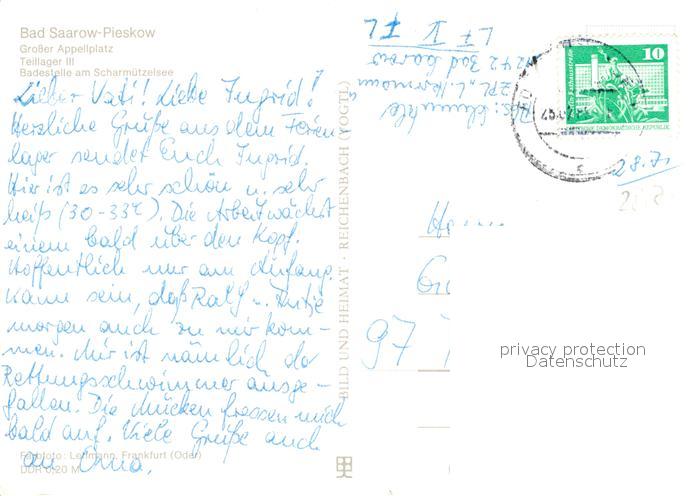 Bad Saarow-Pieskow
Großer Appellplatz
Teillager III
Badestelle am Scharmützelsee
Lieber Vati! Liebe Ingrid!
Herzliche Grüße aus dem Ferien
lager sendet Euch Ingrid.
Hier ist es sehr schön u. sehr
heiß (30-33°C). Die Arbeit wächst
einem bald über den Kopf.
Hoffentlich nur am Anfang.
Kann sein, daß Ralf u. Antje
morgen auch zu mir kom-
men. Mir ist nämlich der
Rettungsschwimmer ausge-
fallen. Die Mücken fressen mich
bald auf. Viele Grüße auch
an Oma.
Farbfoto: Lehmann, Frankfurt (Oder)
DDR 0,20 M
BILD UND HEIMAT · REICHENBACH (VOGTL)
ZPL „L. Herrmann
1242 Bad Saarow
LF V
10
DEUTSCHE DEMOKRATISCHE REPUBLIK
28.7.
97
privacy protection
Datenschutz